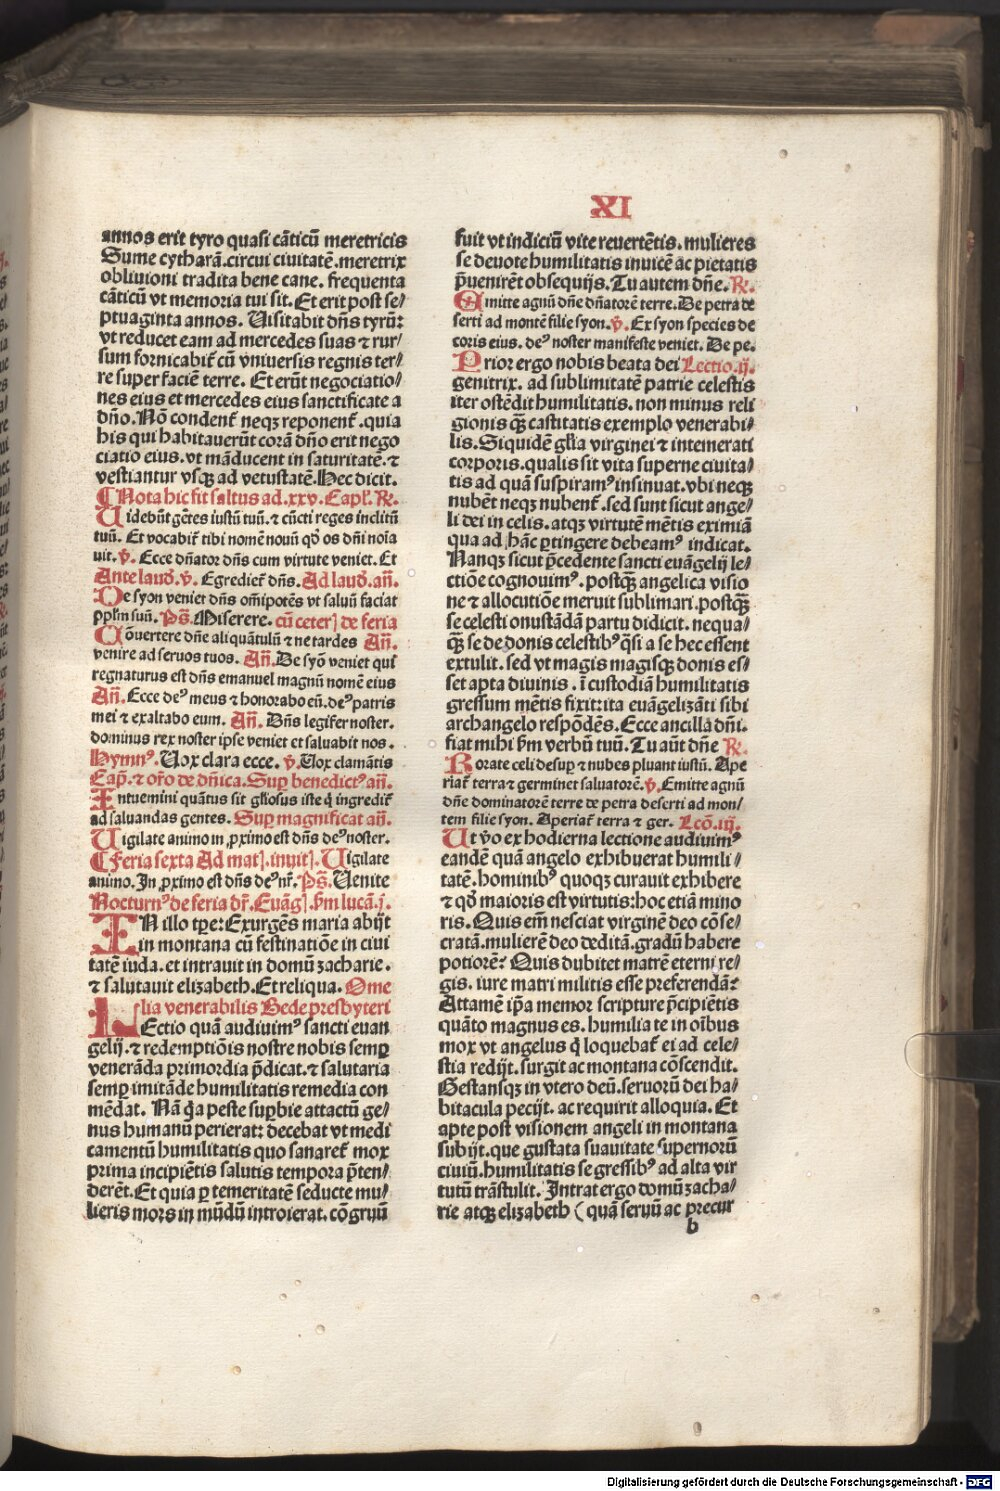 XI
annos erit tyro quasi cāticū meretricis
Sume cytharā.circui ciuitatē.meretrix
obliuioni tradita bene cane. frequenta
cāticū vt memoria tui sit. Et erit post se/
ptuaginta annos. Uisitabit dn̄s tyrū:
vt reducet eam ad mercedes suas ⁊ rur/
sum fornicabit̄ cū vniuersis regnis ter/
re super faciē terre. Et erūt negociatio/
nes eius et mercedes eius sanctificate a
dn̄o. Nō condent̄ neqꝫ reponent̄. quia
his qui habitauerūt corā dn̄o erit nego
ciatio eius. vt māducent in saturitatē. ⁊
vestiantur vsqꝫ ad vetustatē. Hec dicit.
¶ Nota hic fit saltus ad .xxv. Capl̄. ℟.
Uidebūt gētes iustū tuū. ⁊ cūcti reges inclitū
tuū. Et vocabit̄ tibi nomē nouū qd̄ os dn̄i noīa
uit. ℣. Ecce dn̄ator dn̄s cum virtute veniet. Et
Ante laud̄. ℣. Egrediet̄ dn̄s. Ad laud̄. an̄.
De syon veniet dn̄s om̄ipotēs vt saluū faciat
ppl̄m suū. Ps̄. Miserere. cū ceteꝝ de feria
Cōuertere dn̄e aliquātulū ⁊ ne tardes An̄.
venire ad seruos tuos. An̄. De syō veniet qui
regnaturus est dn̄s emanuel magnū nomē eius
An̄. Ecce deꝰ meus ⁊ honorabo eū. deꝰ patris
mei ⁊ exaltabo eum. An̄. Dn̄s legifer noster.
dominus rex noster ipse veniet et saluabit nos.
Hymnꝰ. Uox clara ecce. ℣. Uox clamātis
Cap̄. ⁊ or̄o de dn̄ica. Suꝑ benedictꝰ an̄.
Intuemini quātus sit gl̄iosus iste q̄ ingredit̄
ad saluandas gentes. Suꝑ magnificat an̄.
Uigilate animo in ꝓximo est dn̄s deꝰ noster.
¶ Feria sexta Ad matꝝ. inuitꝝ. Uigilate
animo. In ꝓximo est dn̄s deꝰ nr̄. Ps̄. Uenite
Nocturnꝰ de feria dr̄. Euāgꝝ. ẜm lucā.j.
IN illo tꝑe: Exurgēs maria abijt
in montana cū festinatiōe in ciui
tatē iuda. et intrauit in domū zacharie.
⁊ salutauit elizabeth. Et reliqua. Ome
lia venerabilis Bede presbyteri
LEctio quā audiuimꝰ sancti euan
gelij. ⁊ redemptiōis nostre nobis semꝑ
venerāda primordia p̄dicat. ⁊ salutaria
semꝑ imitāde humilitatis remedia con
mēdat. Nā q̄a peste suꝑbie attactū ge/
nus humanū perierat: decebat vt medi
camentū humilitatis quo sanaret̄ mox
prima incipiētis salutis tempora p̄ten/
derēt. Et quia ꝑ temeritatē seducte mu/
lieris mors in mūdū introierat. cōgruū
fuit vt indiciū vite reuertētis. mulieres
se deuote humilitatis inuicē ac pietatis
p̄uenirēt obsequijs. Tu autem dn̄e. ℟.
Emitte agnū dn̄e dn̄atorē terre. De petra de
serti ad montē filie syon. ℣. Ex syon species de
coris eius. deꝰ noster manifeste veniet. De pe.
Prior ergo nobis beata dei Lectio.ij.
genitrix. ad sublimitatē patrie celestis
iter ostēdit humilitatis. non minus reli
gionis qꝫ castitatis exemplo venerabi/
lis. Siquidē gl̄ia virginei ⁊ intemerati
corporis. qualis sit vita superne ciuita/
tis ad quā suspiramꝰ insinuat. vbi neqꝫ
nubēt neqꝫ nubent̄. sed sunt sicut ange/
li dei in celis. atqꝫ virtutē mētis eximiā
qua ad hāc ꝑtingere debeamꝰ indicat.
Nanqꝫ sicut p̄cedente sancti euāgelij le/
ctiōe cognouimꝰ. postqꝫ angelica visio
ne ⁊ allocutiōe meruit sublimari. postqꝫ
se celesti onustādā partu didicit. nequa/
qꝫ se de donis celestibꝰ q̄si a se hec essent
extulit. sed vt magis magisqꝫ donis es/
set apta diuinis. ī custodiā humilitatis
gressum mētis fixit: ita euāgelizāti sibi
archangelo respōdēs. Ecce ancilla dn̄i.
fiat mihi ẜm verbū tuū. Tu aūt dn̄e ℟.
Rorate celi desuꝑ ⁊ nubes pluant iustū. Ape
riat̄ terra ⁊ germinet saluatorē. ℣. Emitte agnū
dn̄e dominatorē terre de petra deserti ad mon/
tem filie syon. Aperiat̄ terra ⁊ ger. Lcō.iij.
Ut v̄o ex hodierna lectione audiuimꝰ
eandē quā angelo exhibuerat humili/
tatē. hominibꝰ quoqꝫ curauit exhibere
⁊ qd̄ maioris est virtutis: hoc etiā mino
ris. Quis em̄ nesciat virginē deo cōse/
cratā. mulierē deo deditā. gradū habere
potiorē? Quis dubitet matrē eterni re/
gis. iure matri militis esse preferendā?
Attamē ip̄a memor scripture p̄cipiētis
quāto magnus es. humilia te in oībus
mox vt angelus q̄ loquebat̄ ei ad cele/
stia redijt. surgit ac montana cōscendit.
Gestansqꝫ in vtero deū. seruorū dei ha/
bitacula pecijt. ac requirit alloquia. Et
apte post visionem angeli in montana
subijt. que gustata suauitate supernorū
ciuiū. humilitatis se gressibꝰ ad alta vir
tutū trāstulit. Intrat ergo domū zacha/
rie atqꝫ elizabeth (quā seruū ac precur
b
Digitalisierung gefördert durch die Deutsche Forschungsgemeinschaft - DFG